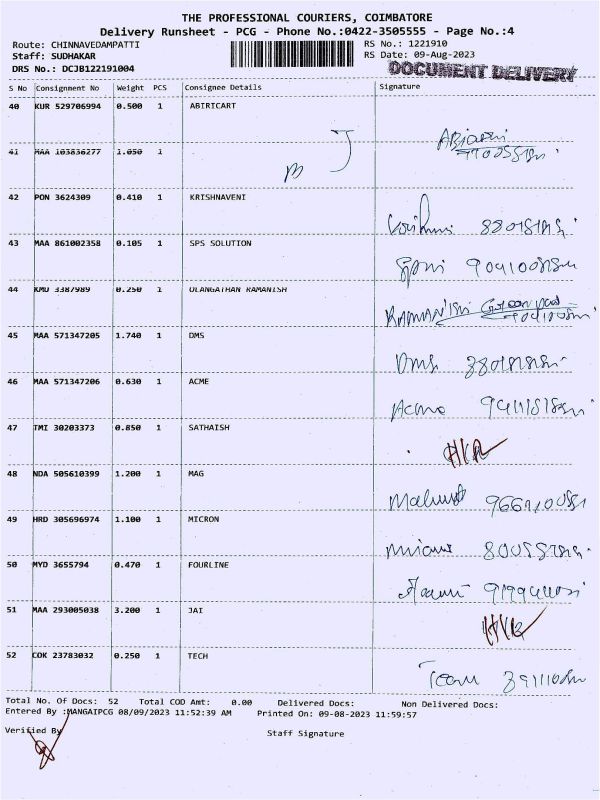 THE PROFESSIONAL COURIERS, COIMBATORE
Delivery Runsheet - PCG - Phone No.:0422-3505555 - Page No.:4
Route: CHINNAVEDAMPATTI RS No.: 1221910
Staff: SUDHAKAR RS Date: 09-Aug-2023
DRS No.: DCJB122191004 DOCUMENT DELIVERY
S No Consignment No Weight PCS Consignee Details Signature
40 KUR 529706994 0.500 1 ABIRICART
41 MAA 103836277 1.050 1
42 PON 3624309 0.410 1 KRISHNAVENI
43 MAA 861002358 0.105 1 SPS SOLUTION
44 KMU 3387989 0.250 1 ULANGATHAN RAMANISH
RAMANISH
45 MAA 571347205 1.740 1 DMS
Dms
46 MAA 571347206 0.630 1 ACME
Acme
47 TMI 30203373 0.850 1 SATHAISH
48 NDA 505610399 1.200 1 MAG
49 HRD 305696974 1.100 1 MICRON
50 MYD 3655794 0.470 1 FOURLINE
51 MAA 293005038 3.200 1 JAI
52 COK 23783032 0.250 1 TECH
Total No. Of Docs: 52 Total COD Amt: 0.00 Delivered Docs: Non Delivered Docs:
Entered By :MANGAIPCG 08/09/2023 11:52:39 AM Printed On: 09-08-2023 11:59:57
Verified By Staff Signature